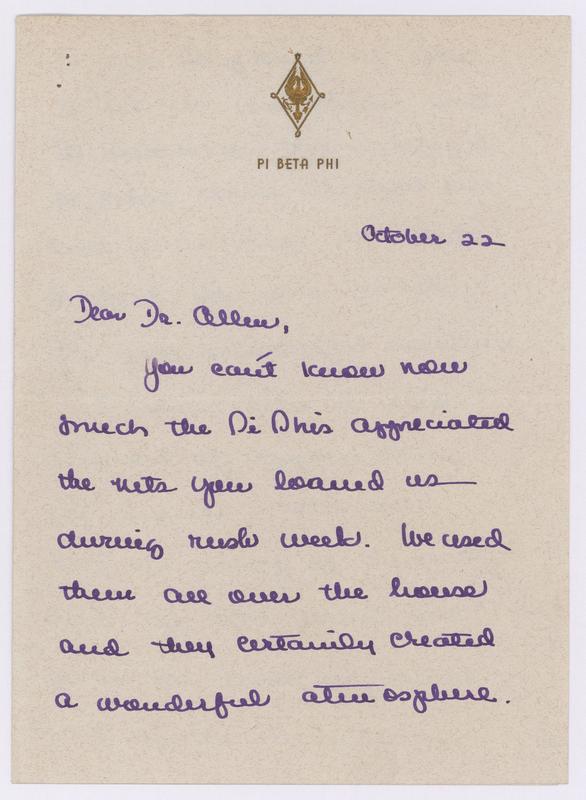 PI BETA PHI
October 22
Dear Dr. Allen,
You can't know how
much the Pi Phis appreciated
the nets you loaned us
during rush week. We used
them all over the house
and they certainly created
a wonderful atmosphere.